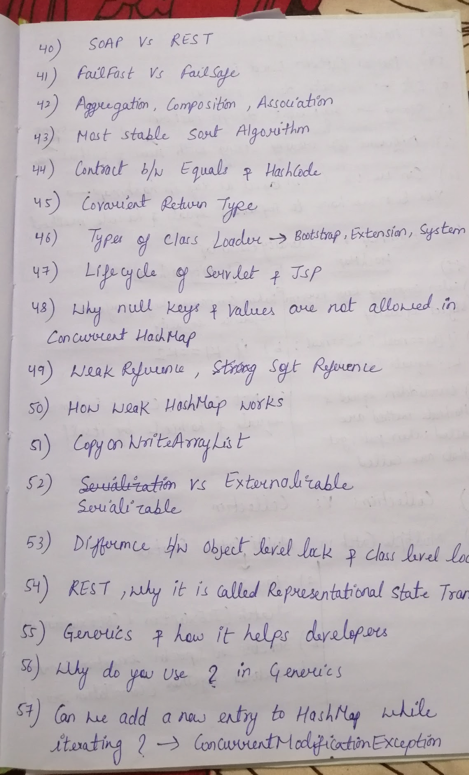 40) SOAP Vs REST
41) FailFast Vs FailSafe
42) Aggregation, Composition, Association
43) Most stable Sort Algorithm
44) Contract b/w Equals & HashCode
45) Covarient Return Type
46) Types of Class Loader → Bootstrap, Extension, System
47) Lifecycle of Servlet & JSP
48) Why null keys & values are not allowed in
Concurrent HashMap
49) Weak Reference, Strong Soft Reference
50) How Weak HashMap works
51) Copy on WriteArrayList
52) Serialization vs Externalizable
Serializable
53) Difference b/w Object level lock & class level loc
54) REST, why it is called Representational State Tran
55) Generics & how it helps developers
56) Why do you use ? in Generics
57) Can we add a new entry to HashMap while
iterating ? → ConcurrentModificationException